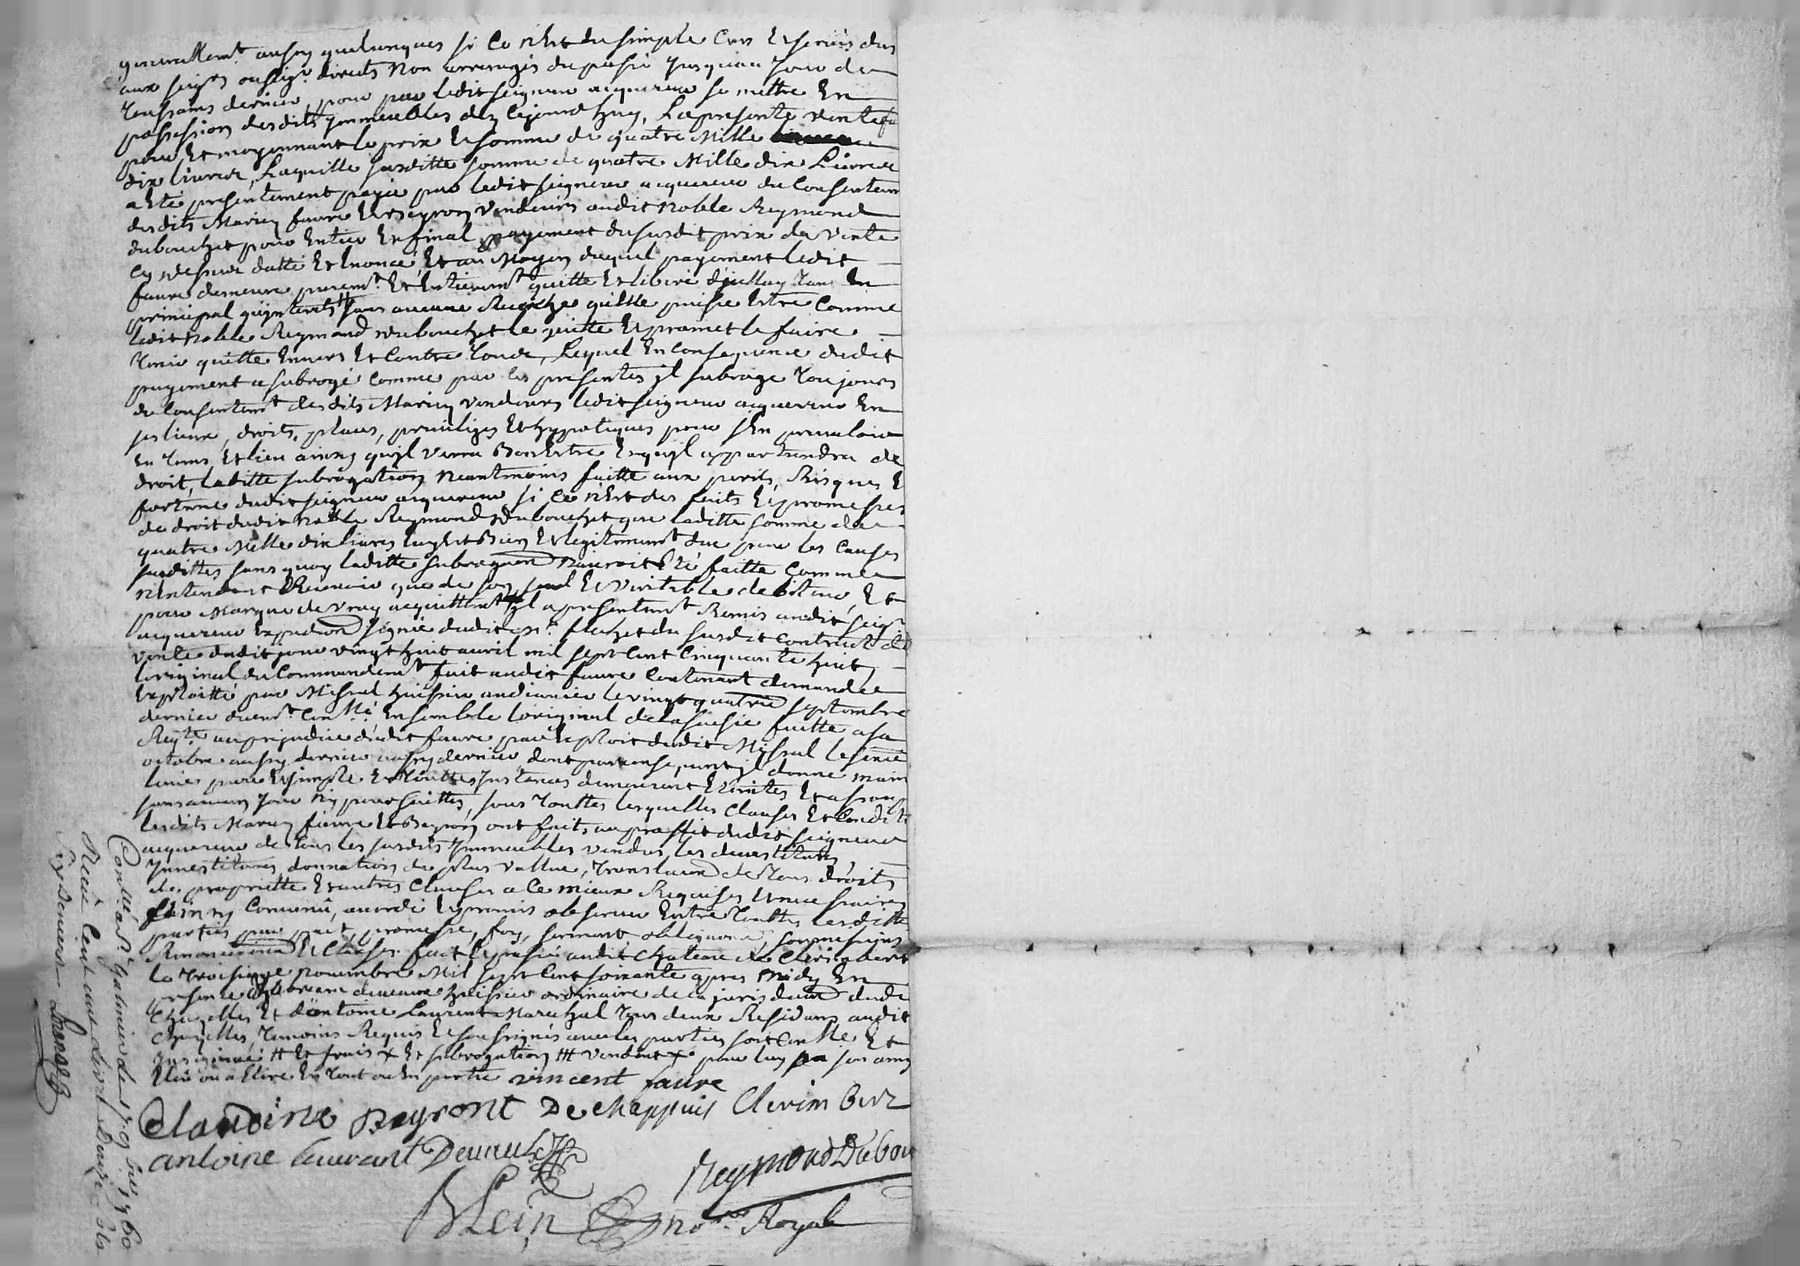 generallemt. aussy quelconques si ce n'est du simple cens et servis dus
aux seigrs ou sieigr. directs non arreragés du passé jusqu'au jour de
toussaints dernier, pour par ledit seigneur acquereur se mettre en
possession desdits jmmeubles dez cejourd'huy, La presente vente fe
pour et moyonnant le prix et somme de quatre mille
dix livres, Laquelle susditte somme de quatre Mille dix Livres
a eté presentement payée par ledit seigneur acquereur du consentem
desdits Mariez faure et Peyron vendeurs audit noble Reymond
dubouchet pour entier et final payement du susdit prix de vente
cy dessus datté et enoncé, et au Moyen duquel payement ledit
faure demeure puremt. et entieremt. quitte et liberé d'jcelluy tant en
principal qu'jnterets # sans aucune Recherche qu'elle puisse estre comme
ledit noble Reymond dubouchet le quitte et promet le faire
tenir quitte envers et contre tous, Lequel en consequence dudit
payement a subrogé comme par les presentes jl subroge toujours
de consentemt. desdits Mariez vendeurs ledit seigneur acquereur en
ses lieux, droits, places, privileges et hypoteques pour s'en prevaloir
en tems et lieu ainsy qu'jl verra bon estre et qu'jl appartiendra de
droit, laditte subrogation neantmoins faitte aux perils, Risques et
fortune dudit seigneur acquereur si ce n'est des faits et promesses
de droit dudit noble Reymond dubouchet que laditte somme de
quatre Mille dix livres luy est bien et legitimement due pour les causes
susdittes sans quoy laditte subrogaon n'auroit eté faitte comme
n'entendant Recevoir que de son seul et veritable debiteur, et
pour Marque de vray acquittemt. jl a presentemt. Remis audit seigr.
acquereur expedion signée dudit me. flachet du susdit contract de
vente dudit jour vingt huit avril mil sept cent cinquante huit,
l'original du commandemt. fait audit faure contenant demande
exploitté par Mistral huissier audiancier le vingt quatre septembre
dernier duemt. conllé, ensemble l'original de la saisie faitte a sa
Reqte. au prejudice dudit faure par exploit dudit Mistral le
octobre aussy dernier dont par ensemble jl donne main
levée pure et simple et touttes jnstances demeurent eteintes et assoupies
sans aucun jour ny poursuittes, sous touttes lesquelles clauses et condit.
lesdits Mariez faure et Peyron ont faits au proffit dudit seigneur
acquereur de tous les susdits jmmeubles vendus les devestitures,
jnvestitures, donnations de plus vallue, translaon de tous droits
de proprietté et autres clauses a ce mieux Requises et necessaires
Et ainsy convenu, accordé et promis observer entre touttes lesdittes
parties par pact, promesse, foy, serment obligaons, soummissions
Renonciaons et clauses. fait et passé audit chateau de Clerimbert
le troisieme novembre Mil sept cent soixante apres midy en
presence de demeure huissier ordinaire de la jurisdion dudit
Chazelles et d'antoine Laurent Marechal tous deux Residans audit
Chazelles, temoins Requis et soussignés avec les parties soit conllé et
jnsinué # et frais x et subrogation ### vendent x pour luy son amy
elu ou a elire en tout ou en partie vincent faure
Claudine peyront De chappuis Clerimbert
antoine Laurant Demeure
Reymond Dubou
Blein no.re Royal
Conllé a St. Galmier le 7e 9bre 1760
Reçu cent une livre douze sols
six deniers